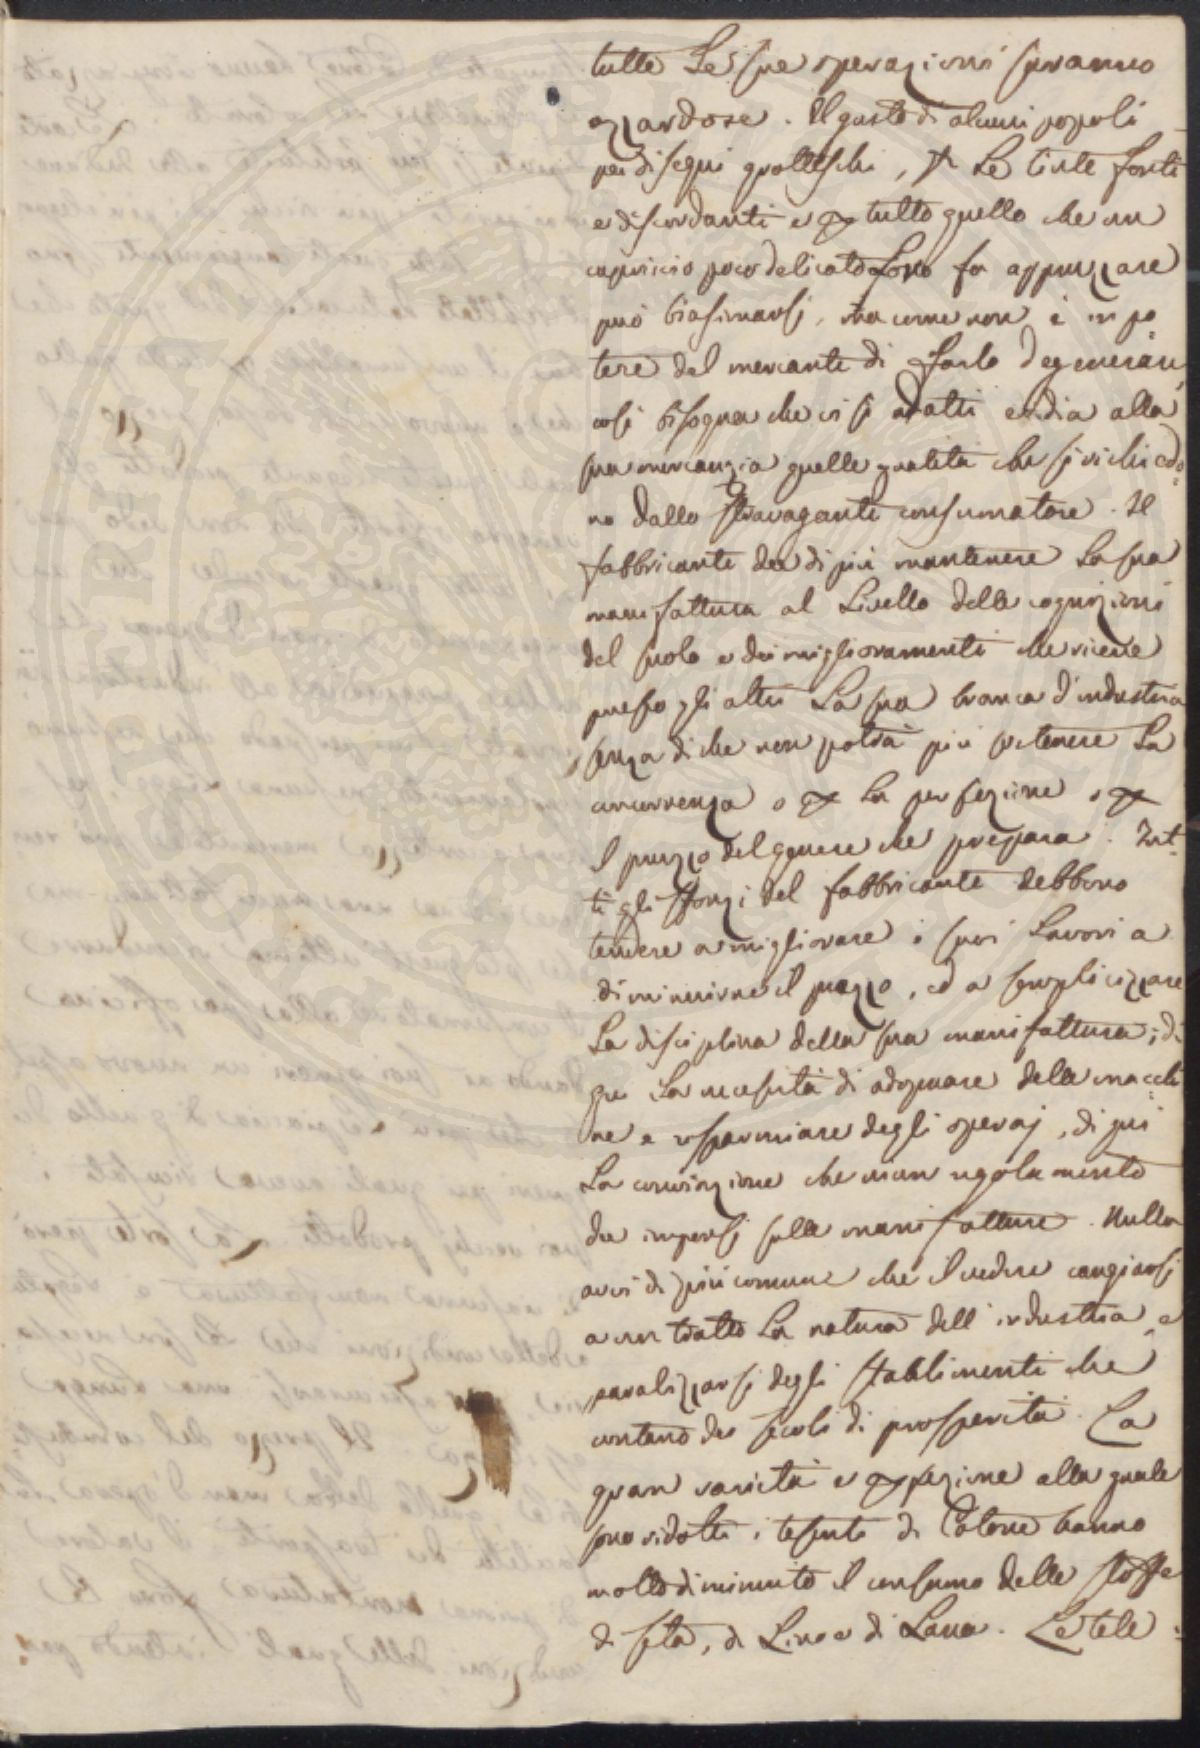 tutte Le sue operazioni saranno
azzardose. Il gusto di alcuni popoli
pei disegni grotteschi, Le tinte forti
e discordanti e tutto quello che un
capriccio poco delicato Loro fa apprezzare
può biasimarsi, ma come non è in po=
tere del mercante di farlo degenerare
così bisogna che vi si adatti e dia alla
sua mercanzia quelle qualità che si richiedo=
no dallo stravagante consumatore. Il
fabbricante dee di più mantenere La sua
manifattura al Livello delle cognizioni
del suolo e dei miglioramenti che riceve
presso gli altri La sua branca d'industria
senza di che non potrà più sostenere La
concorrenza o per La perfezione o per
il prezzo del genere che prepara. Tut=
ti gli sforzi del fabbricante debbono
tendere a migliorare i suoi Lavori a
diminuirne il prezzo, ed a semplicizzare
La disciplina della sua manifattura; di
qui La necessità di adoprare delle macchi=
ne e risparmiare degli operaj, di qui
La convinzione che niun regolamento
dee imporsi sulle manifatture. Nulla
avvi di più comune che il vedere cangiarsi
a un tratto La natura dell'industria e
paralizzarsi degli stabilimenti che
contano dei secoli di prosperità. La
gran varietà e perfezione alla quale
sono ridotti i tessuti di Cotone hanno
molto diminuito il consumo delle stoffe
di seta, di Lino e di Lana. Le tele